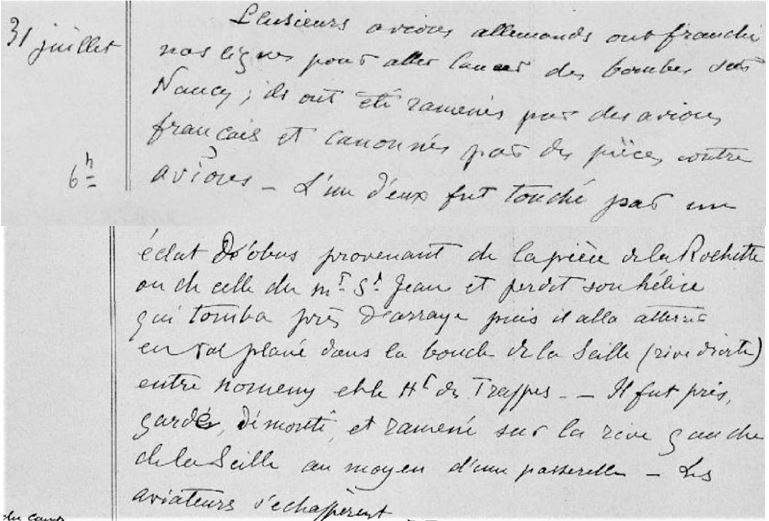 31 juillet
Plusieurs avions allemands ont franchi
nos lignes pour aller lancer des bombes sur
Nancy ; ils ont été ramenés par des avions
français et canonnés par des pièces contre
6h
avions - L'un d'eux fut touché par un
éclat d'obus provenant de la pièce de la Rochette
ou de celle du mt St Jean et perdit son hélice
qui tomba près d'Arraye puis il alla atterrir
en vol plané dans la boucle de la Seille (rive droite)
entre Nomeny et le Hr des Trappes. - Il fut pris,
gardé, démonté, et ramené sur la rive gauche
de la Seille au moyen d'une passerelle - Les
aviateurs s'échappèrent
du camp